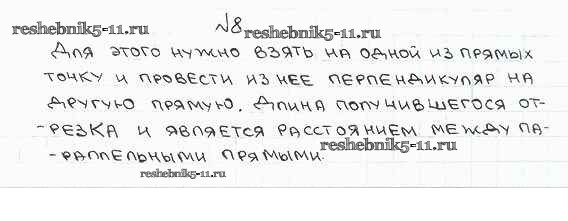 reshebnik5-11.ru №8 reshebnik5-11.ru
Для этого нужно взять на одной из прямых
точку и провести из нее перпендикуляр на
другую прямую. Длина получившегося от-
-резка и является расстоянием между па-
-раллельными прямыми.
reshebnik5-11.ru
reshebnik5-11.ru